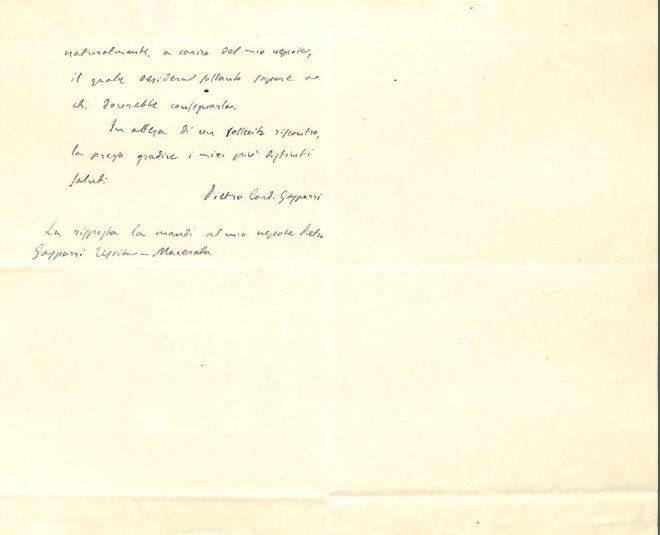 naturalmente, a carico del mio nepote,
il quale desidera soltanto sapere a
chi dovrebbe consegnarla.
In attesa di un sollecito riscontro,
la prego gradire i miei più distinti
saluti
Pietro Card. Gasparri
La risposta la mandi al mio nepote Pietro
Gasparri Ussita – Macerata